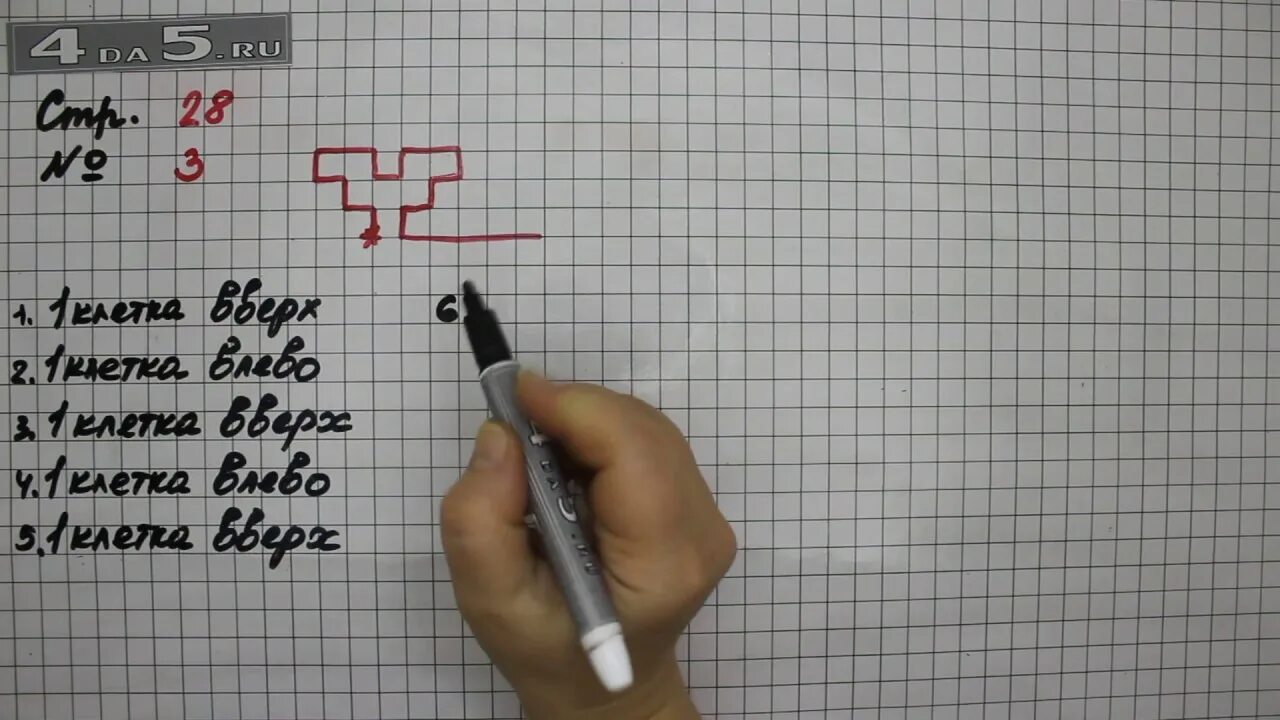 4DA5.RU
Стр. 28
№ 3
1. 1 клетка вверх
2. 1 клетка влево
3. 1 клетка вверх
4. 1 клетка влево
5. 1 клетка вверх
6.
4DA5.RU